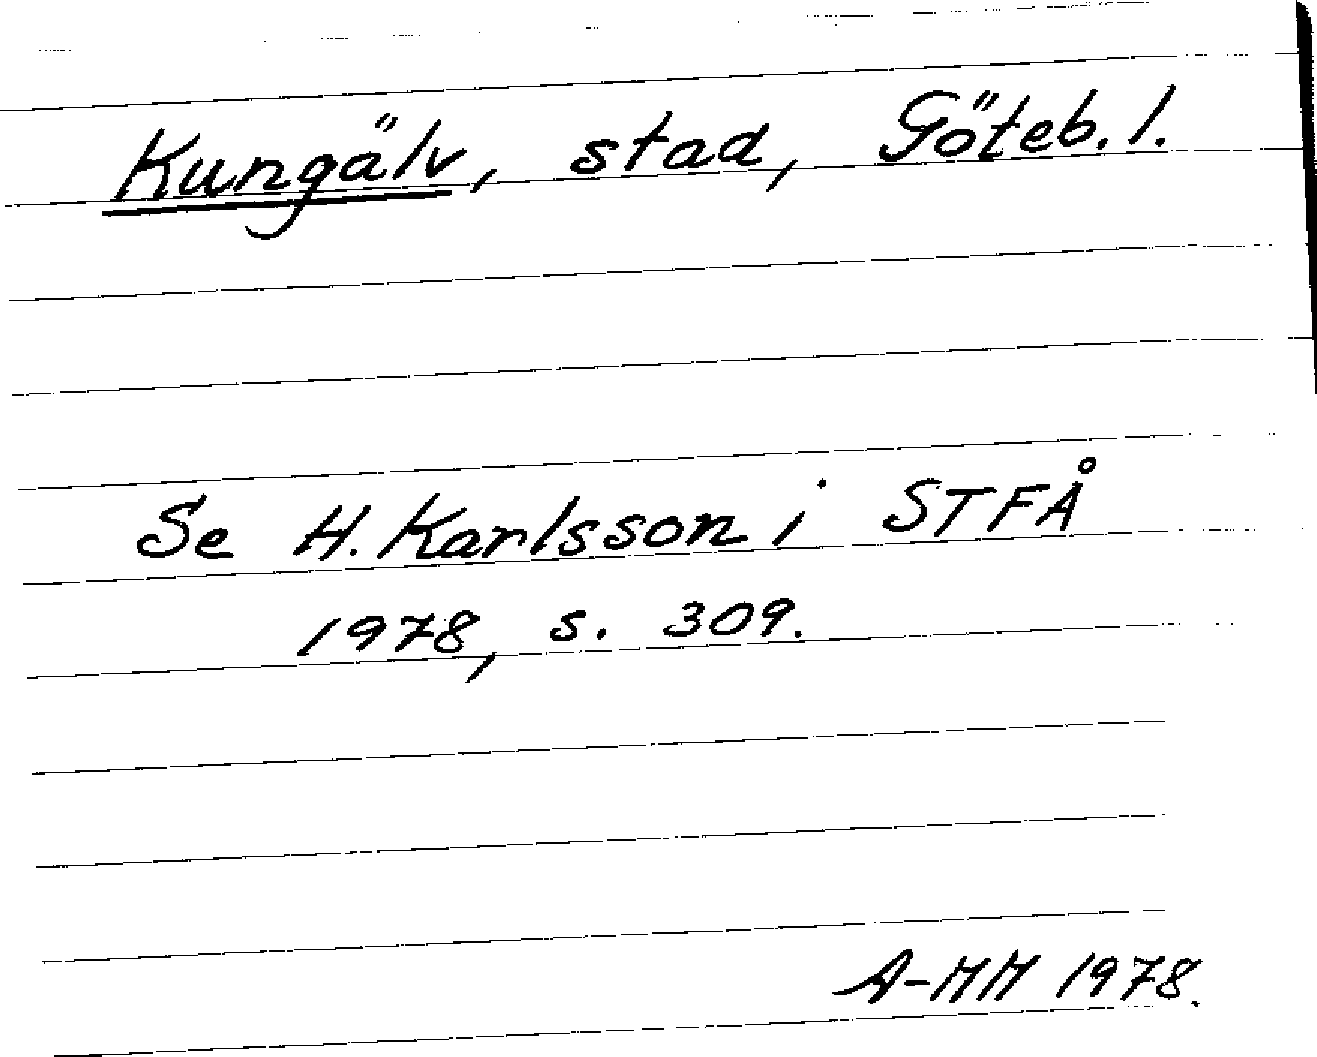 Kungälv, stad, Göteb. l.
Se H. Karlsson i STFÅ
1978, s. 309.
A-MM 1978.